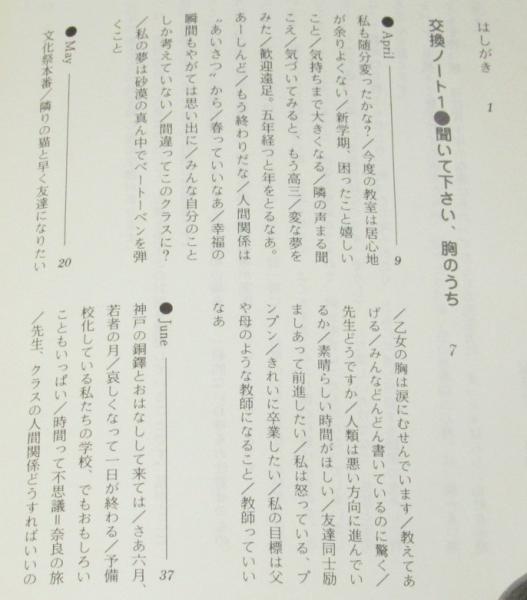 はしがき　1
交換ノート1●聞いて下さい、胸のうち　7
●April　9
私も随分変ったかな?/今度の教室は居心地
が余りよくない/新学期、困ったこと嬉しい
こと/気持ちまで大きくなる/隣の声まる聞
こえ/気づいてみると、もう高三/変な夢を
みた/歓迎遠足。五年経つと年をとるなあ。
あーしんど/もう終わりだな/人間関係は
"あいさつ"から/春っていいなあ/幸福の
瞬間もやがては思い出に/みんな自分のこと
しか考えていない/間違ってこのクラスに?
/私の夢は砂漠の真ん中でベートーベンを弾
くこと
●May　20
文化祭本番/隣りの猫と早く友達になりたい
/乙女の胸は涙にむせんでいます/教えてあ
げる/みんなどんどん書いているのに驚く/
先生どうですか/人類は悪い方向に進んでい
るか/素晴らしい時間がほしい/友達同士励
ましあって前進したい/私は怒っている、プ
ンプン/きれいに卒業したい/私の目標は父
や母のような教師になること/教師っていい
なあ
●June　37
神戸の銅鐸とおはなしして来ては/さあ六月、
若者の月/哀しくなって一日が終わる/予備
校化している私たちの学校、でもおもしろい
こともいっぱい/時間って不思議=奈良の旅
/先生、クラスの人間関係どうすればいいの